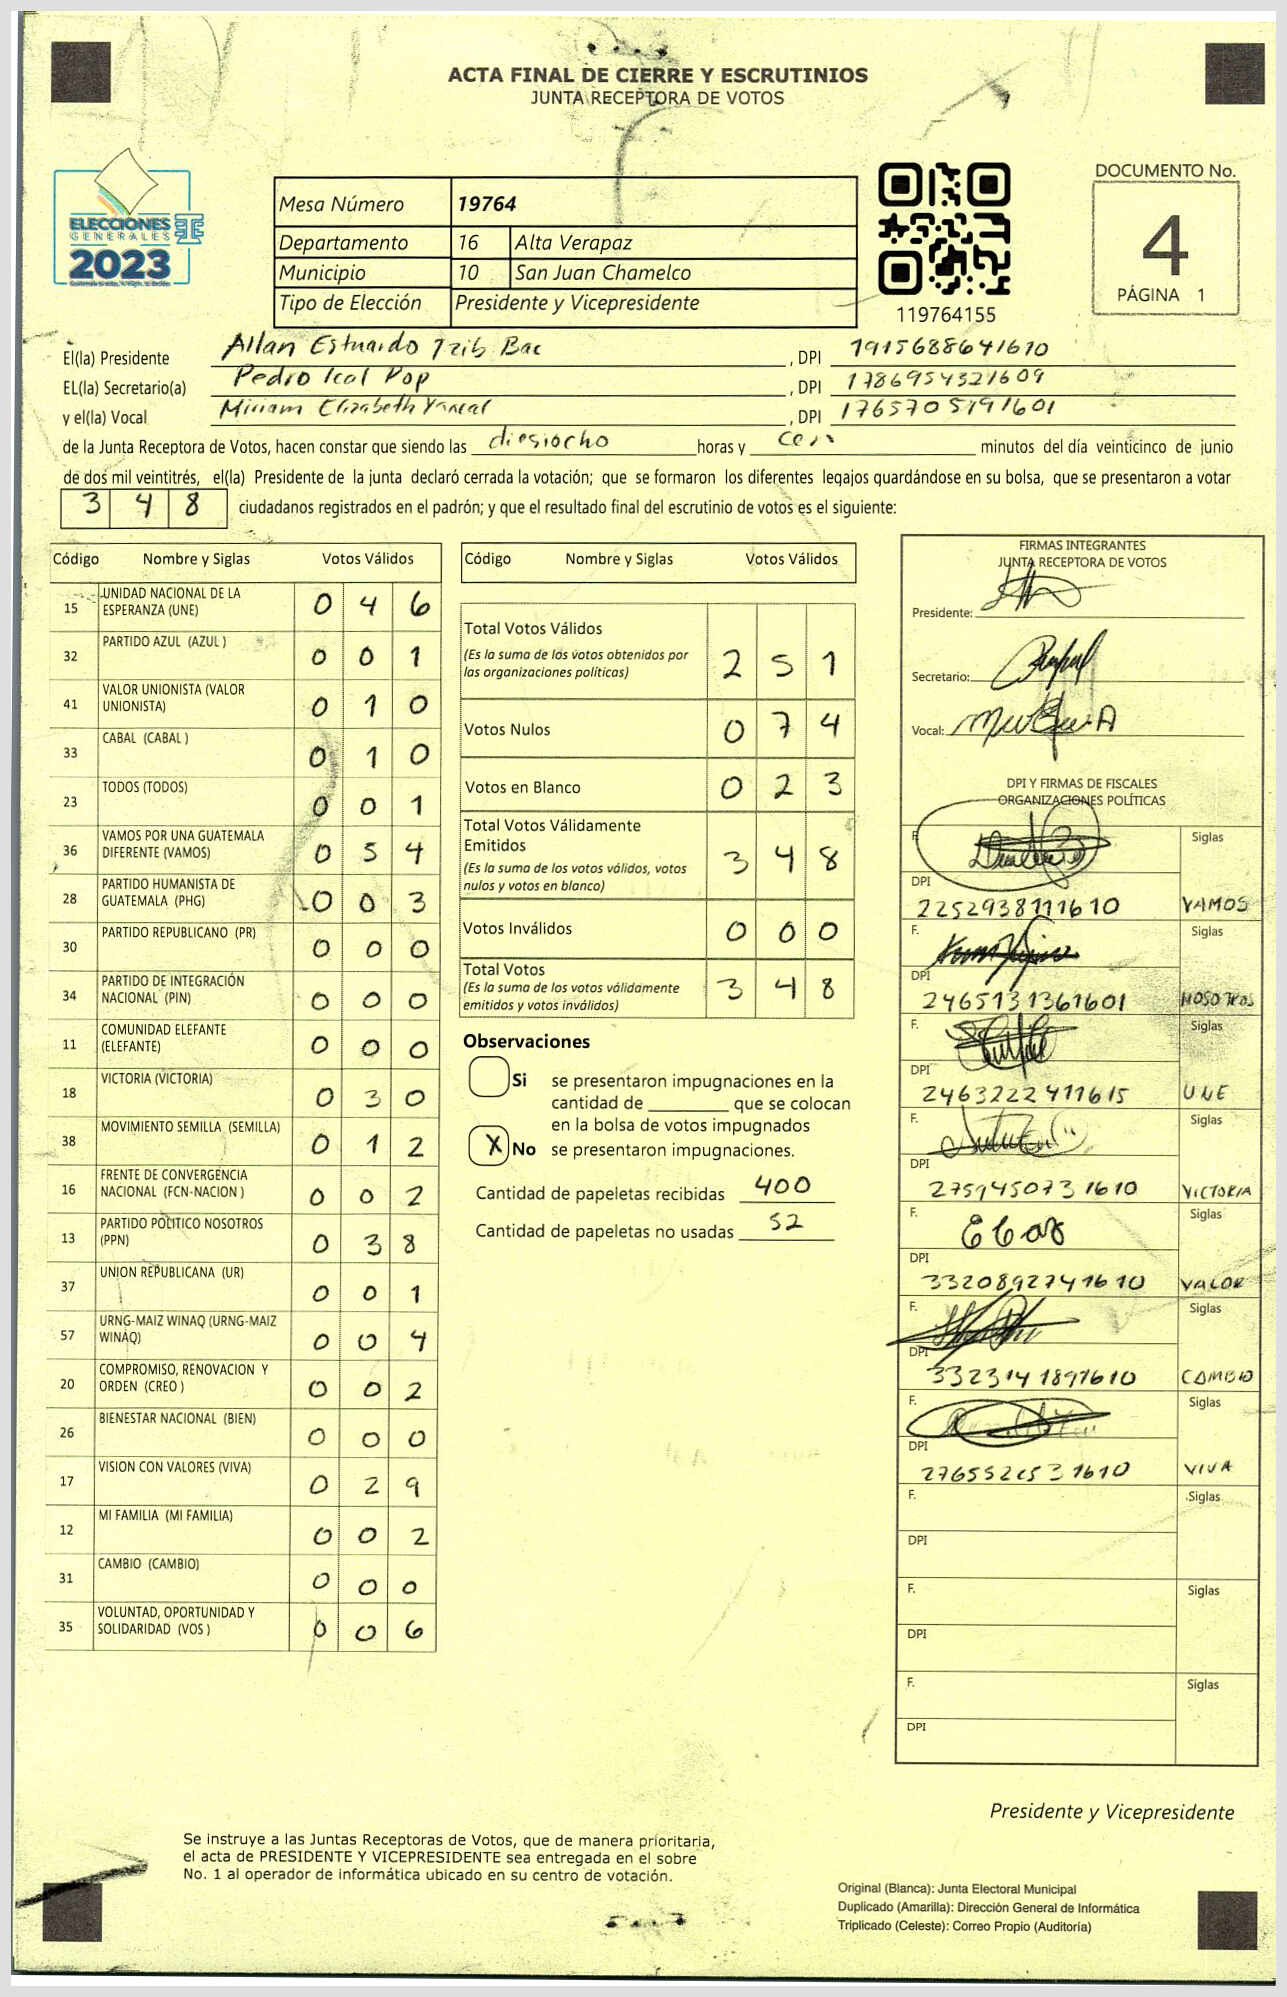 ACTA FINAL DE CIERRE Y ESCRUTINIOS
JUNTA RECEPTORA DE VOTOS
ELECCIONES
GENERALES
2023
Mesa Número 19764
Departamento 16 Alta Verapaz
Municipio 10 San Juan Chamelco
Tipo de Elección Presidente y Vicepresidente
119764155
DOCUMENTO No.
4
PÁGINA 1
El(la) Presidente Allan Estuardo Tzib Bac , DPI 1915688641610
EL(la) Secretario(a) Pedro Ical Pop , DPI 1786954321609
y el(la) Vocal Miriam Elizabeth , DPI 1765705191601
de la Junta Receptora de Votos, hacen constar que siendo las diesiocho horas y minutos del día veinticinco de junio
de dos mil veintitrés, el(la) Presidente de la junta declaró cerrada la votación; que se formaron los diferentes legajos guardándose en su bolsa, que se presentaron a votar
3 4 8 ciudadanos registrados en el padrón; y que el resultado final del escrutinio de votos es el siguiente:
Código Nombre y Siglas Votos Válidos
15 UNIDAD NACIONAL DE LA ESPERANZA (UNE) 0 4 6
32 PARTIDO AZUL (AZUL ) 0 0 1
41 VALOR UNIONISTA (VALOR UNIONISTA) 0 1 0
33 CABAL (CABAL ) 0 1 0
23 TODOS (TODOS) 0 0 1
36 VAMOS POR UNA GUATEMALA DIFERENTE (VAMOS) 0 5 4
28 PARTIDO HUMANISTA DE GUATEMALA (PHG) 0 0 3
30 PARTIDO REPUBLICANO (PR) 0 0 0
34 PARTIDO DE INTEGRACIÓN NACIONAL (PIN) 0 0 0
11 COMUNIDAD ELEFANTE (ELEFANTE) 0 0 0
18 VICTORIA (VICTORIA) 0 3 0
38 MOVIMIENTO SEMILLA (SEMILLA) 0 1 2
16 FRENTE DE CONVERGENCIA NACIONAL (FCN-NACION ) 0 0 2
13 PARTIDO POLITICO NOSOTROS (PPN) 0 3 8
37 UNION REPUBLICANA (UR) 0 0 1
57 URNG-MAIZ WINAQ (URNG-MAIZ WINAQ) 0 0 4
20 COMPROMISO, RENOVACION Y ORDEN (CREO ) 0 0 2
26 BIENESTAR NACIONAL (BIEN) 0 0 0
17 VISION CON VALORES (VIVA) 0 2 9
12 MI FAMILIA (MI FAMILIA) 0 0 2
31 CAMBIO (CAMBIO) 0 0 0
35 VOLUNTAD, OPORTUNIDAD Y SOLIDARIDAD (VOS ) 0 0 6
Código Nombre y Siglas Votos Válidos
Total Votos Válidos
(Es la suma de los votos obtenidos por
las organizaciones políticas) 2 5 1
Votos Nulos 0 7 4
Votos en Blanco 0 2 3
Total Votos Válidamente
Emitidos
(Es la suma de los votos válidos, votos
nulos y votos en blanco) 3 4 8
Votos Inválidos 0 0 0
Total Votos
(Es la suma de los votos válidamente
emitidos y votos inválidos) 3 4 8
Observaciones
Si se presentaron impugnaciones en la
cantidad de ________ que se colocan
en la bolsa de votos impugnados
X No se presentaron impugnaciones.
Cantidad de papeletas recibidas 400
Cantidad de papeletas no usadas 52
FIRMAS INTEGRANTES
JUNTA RECEPTORA DE VOTOS
Presidente:
Secretario:
Vocal:
DPI Y FIRMAS DE FISCALES
ORGANIZACIONES POLÍTICAS
F. Siglas
DPI
2252938111610 VAMOS
F. Siglas
DPI
2465131361601 NOSOTROS
F. Siglas
DPI
2463222411615 UNE
F. Siglas
DPI
2759450731610 VICTORIA
F. Siglas
DPI
3320892741610 VALOR
F. Siglas
DPI
3323141891610 CAMBIO
F. Siglas
DPI
VIVA
F. Siglas
DPI
F. Siglas
DPI
F. Siglas
DPI
Presidente y Vicepresidente
Se instruye a las Juntas Receptoras de Votos, que de manera prioritaria,
el acta de PRESIDENTE Y VICEPRESIDENTE sea entregada en el sobre
No. 1 al operador de informática ubicado en su centro de votación.
Original (Blanca): Junta Electoral Municipal
Duplicado (Amarilla): Dirección General de Informática
Triplicado (Celeste): Correo Propio (Auditoría)